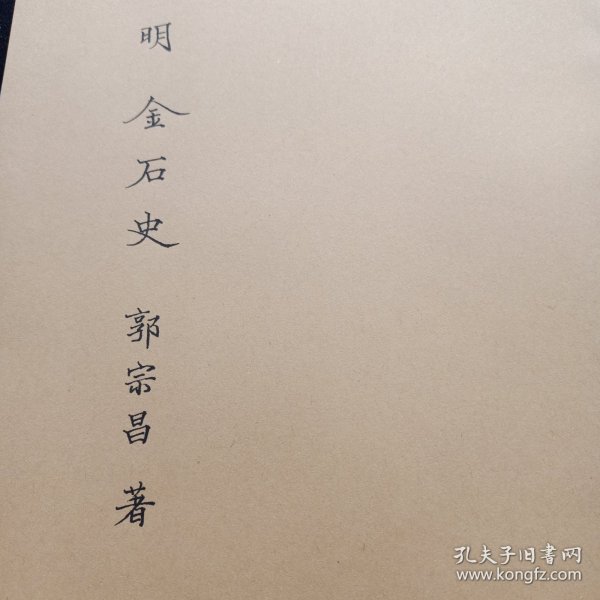 明 金石史 郭宗昌 著
孔夫子旧書网
www.kongfz.com